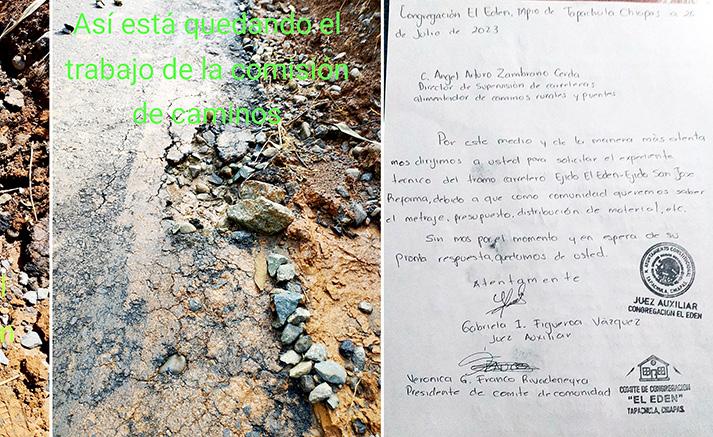 Así está quedando el
trabajo de la comisión
de caminos
Congregación El Eden, Mpio de Tapachula Chiapas a 26
de Julio de 2023
C. Angel Arturo Zambrano Cerda
Director de Supervisión de carreteras
alimentador de caminos rurales y puentes
Por este medio y de la manera más atenta
nos dirijimos a usted para solicitar el expediente
técnico del tramo carretero Ejido El Eden-Ejido San Jose
Reforma, debido a que como comunidad queremos saber
el metraje, presupuesto, distribución de material, etc.
Sin mas por el momento y en espera de su
pronta respuesta, quedamos de usted.
Atentamente
Gabriela I. Figueroa Vázquez
Juez Auxiliar
H. AYUNTAMIENTO CONSTITUCIONAL
TAPACHULA, CHIAPAS
JUEZ AUXILIAR
CONGREGACION EL EDEN
Veronica G. Franco Rivadeneyra
Presidente de comite de comunidad
COMITE DE CONGREGACION
"EL EDEN"
TAPACHULA, CHIAPAS.